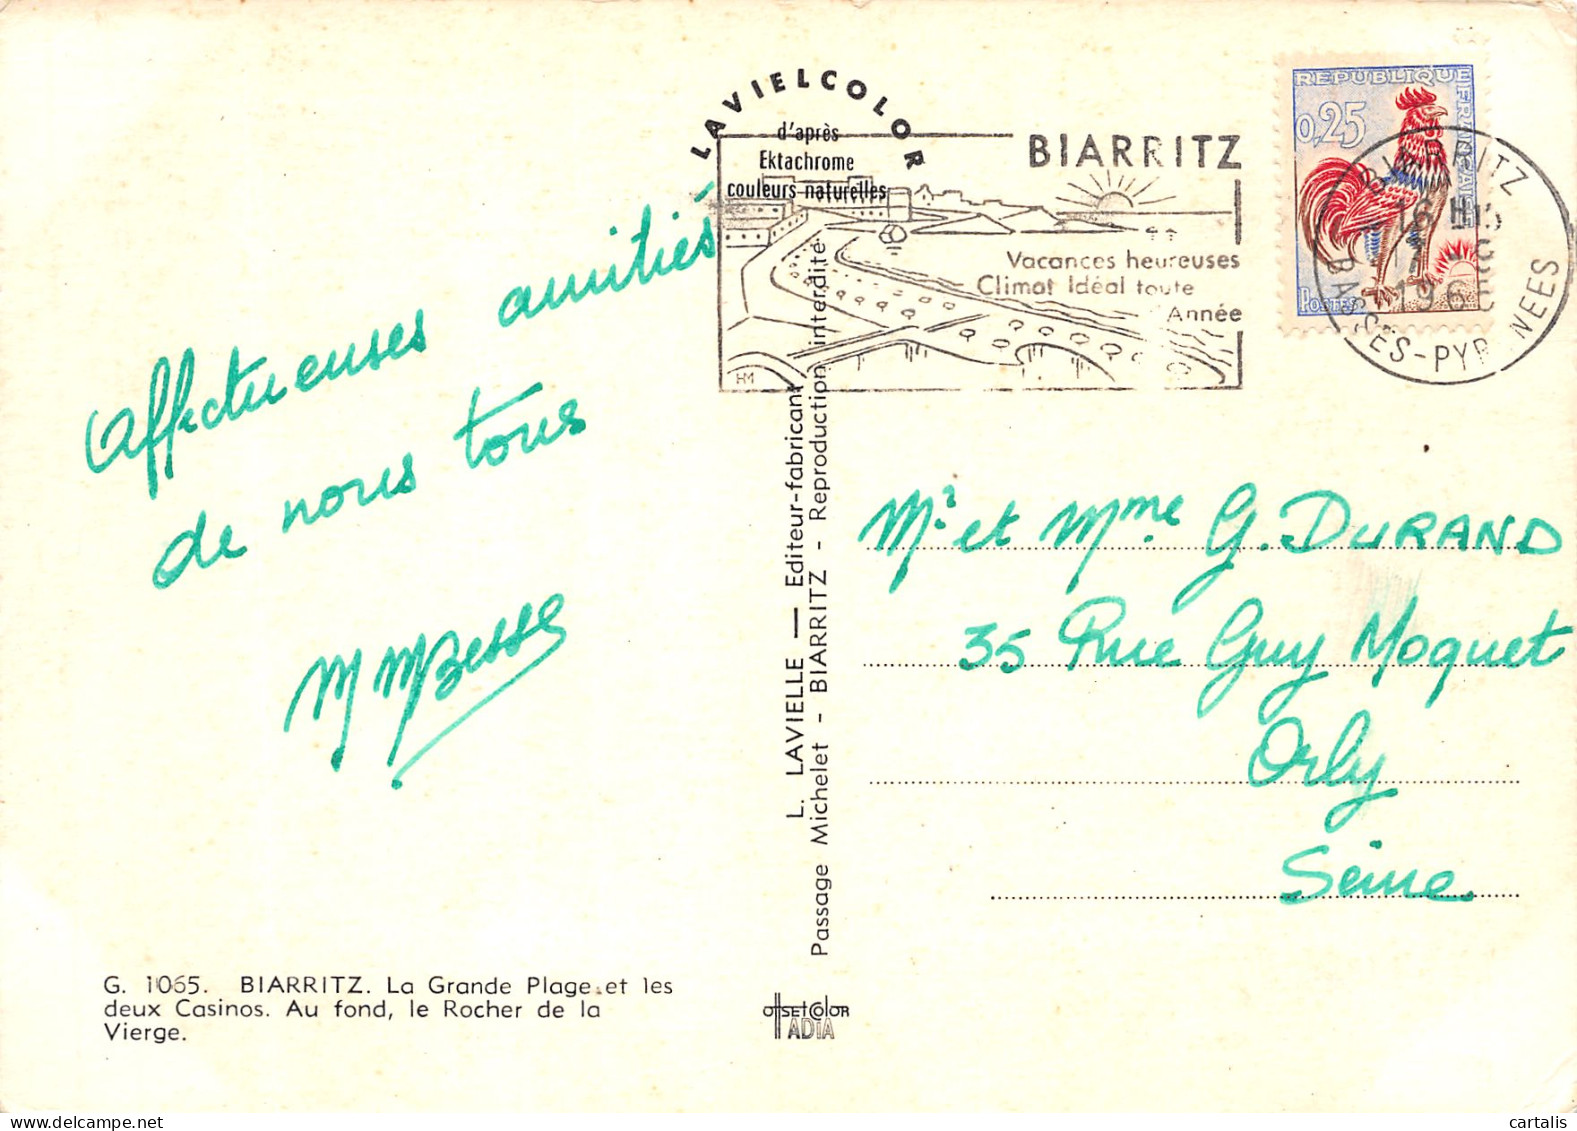 LAVIELCOLOR
d'après
Ektachrome
couleurs naturelles
BIARRITZ
Vacances heureuses
Climat Idéal toute
Année
HM
REPUBLIQUE FRANÇAISE
0,25
POSTES
BIARRITZ
BASSES-PYRENEES
Affectueuses amitiés
de nous tous
Mr et Mme G. DURAND
35 Rue Guy Moquet
Orly
Seine
L. LAVIELLE — Editeur-fabricant
Passage Michelet - BIARRITZ - Reproduction interdite
G. 1065. BIARRITZ. La Grande Plage et les
deux Casinos. Au fond, le Rocher de la
Vierge.
OffSEtColOR
IADIA
cartalis